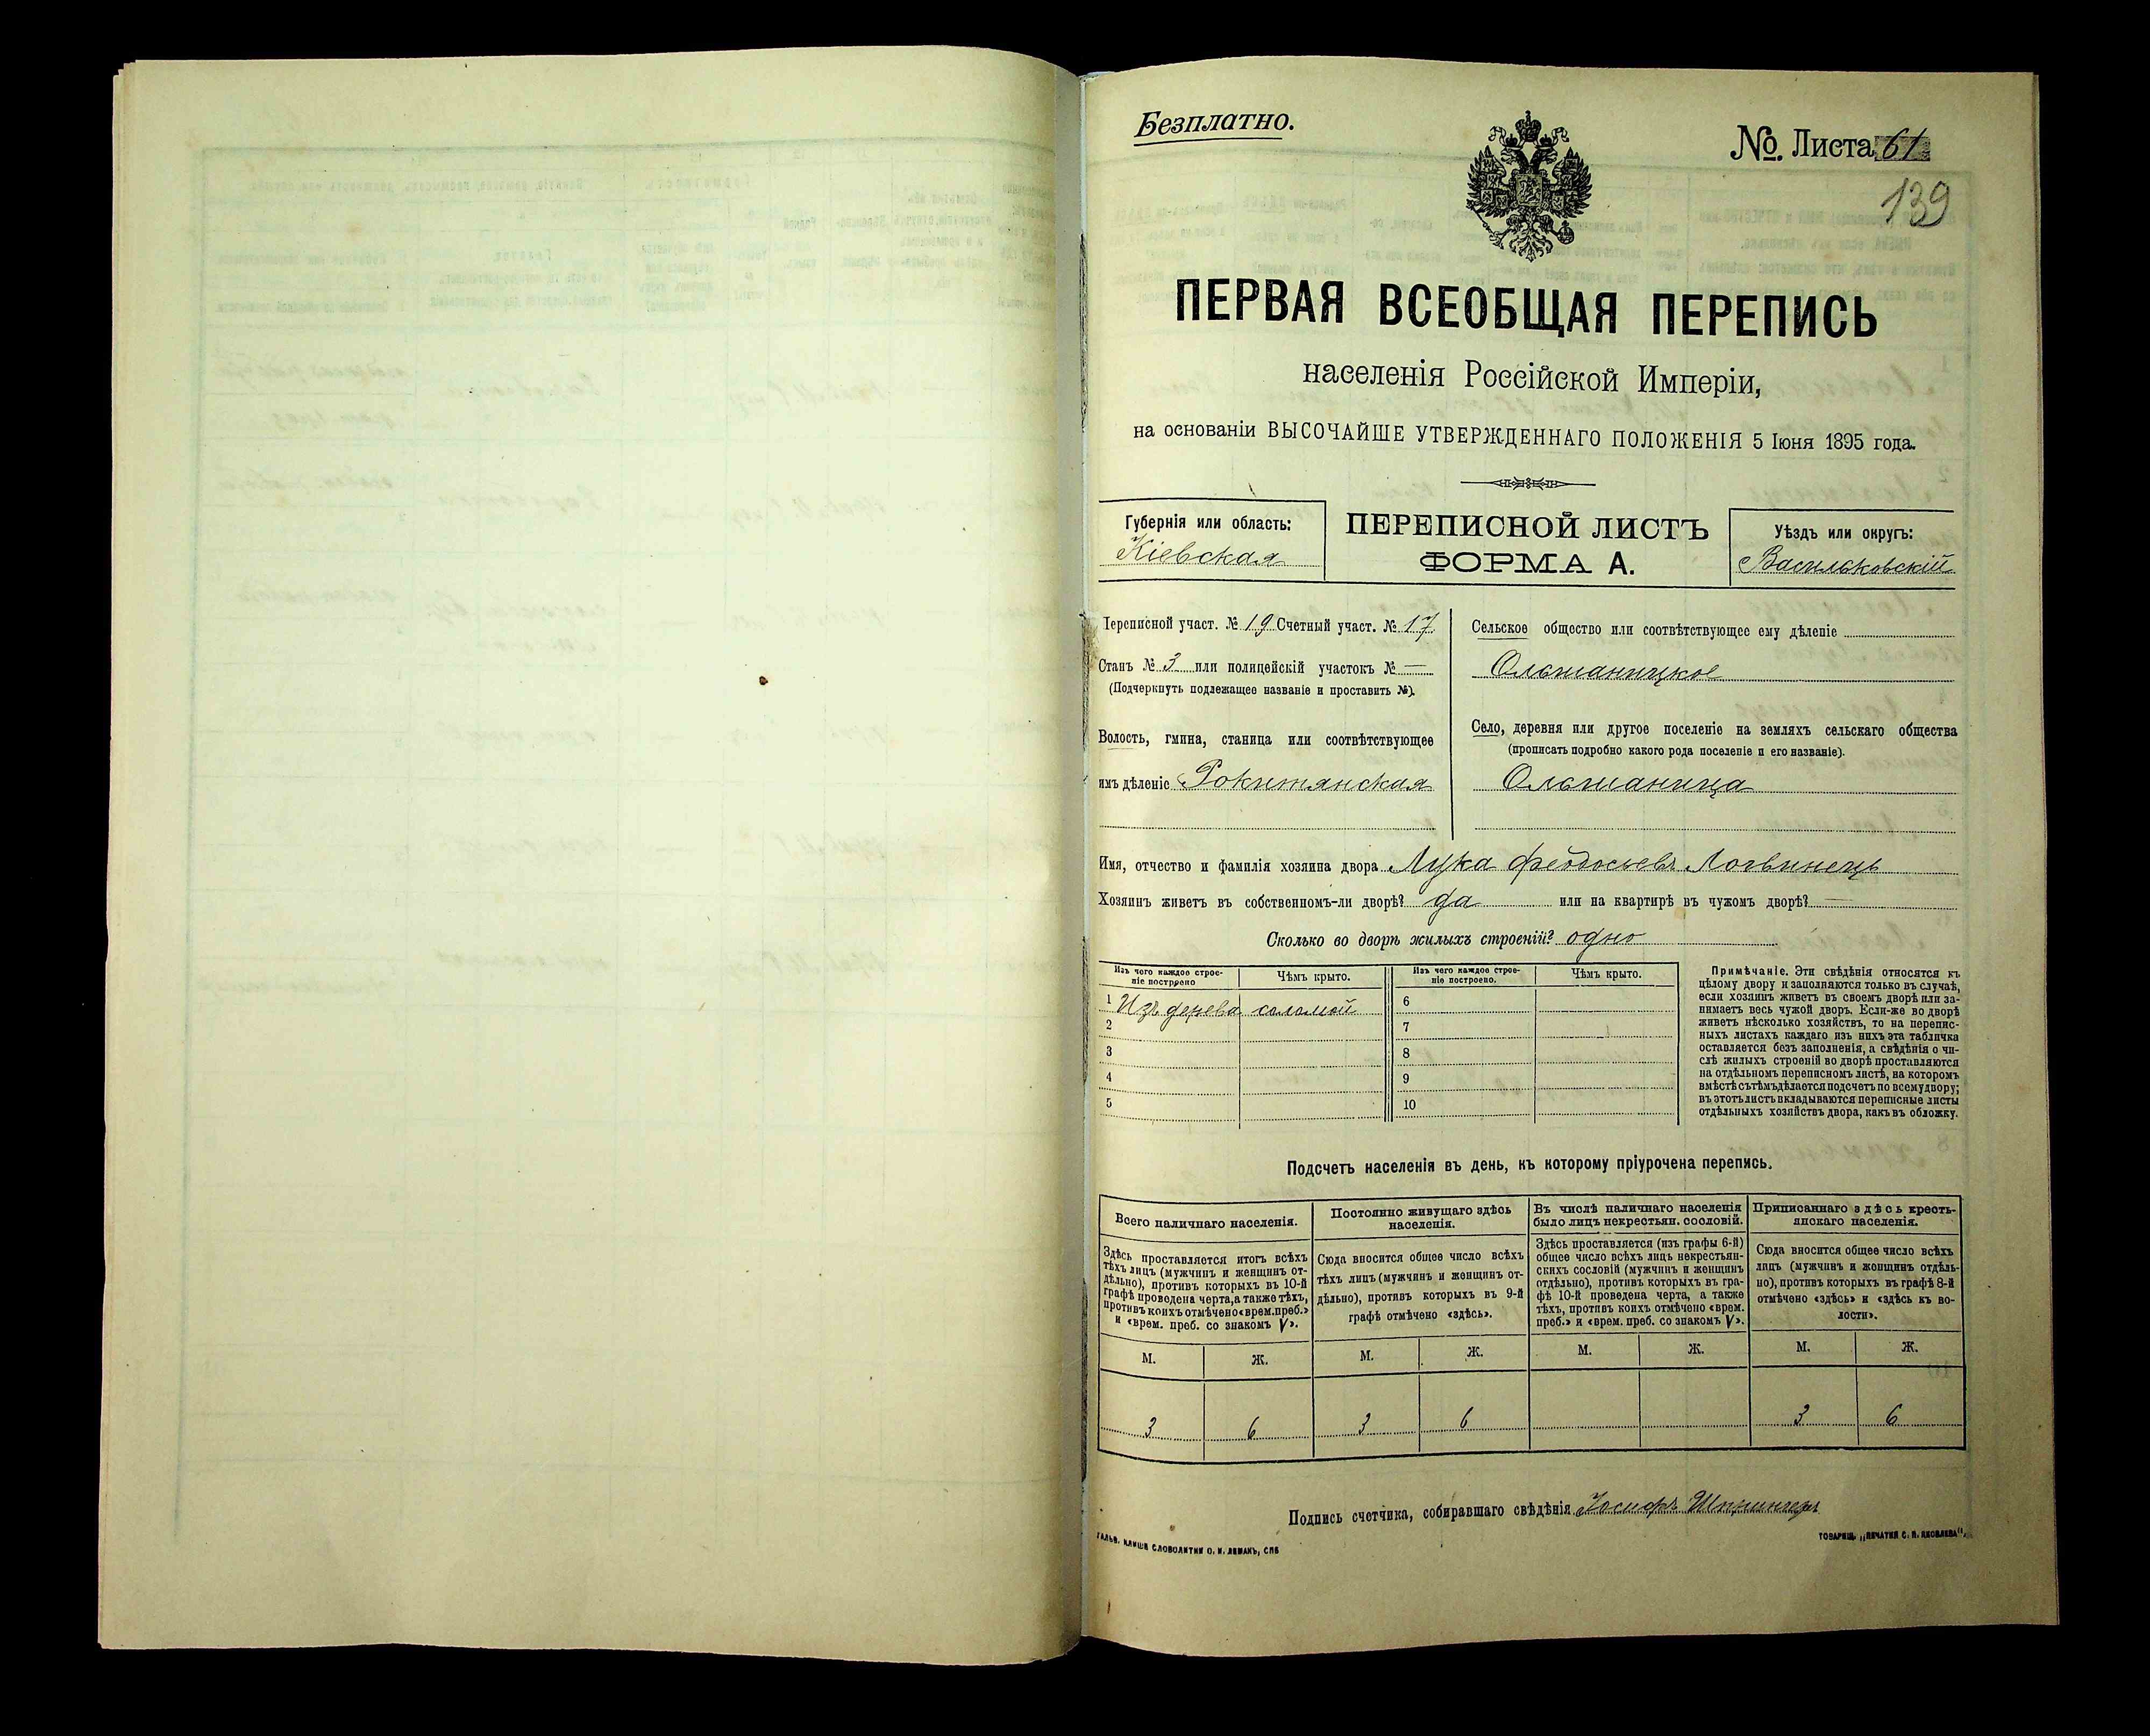 Безплатно.
№ Листа 61
139
ПЕРВАЯ ВСЕОБЩАЯ ПЕРЕПИСЬ
населенія Россійской Имперіи,
на основаніи ВЫСОЧАЙШЕ УТВЕРЖДЕННАГО ПОЛОЖЕНІЯ 5 Іюня 1895 года.
Губернія или область:
Кіевская
ПЕРЕПИСНОЙ ЛИСТЪ
ФОРМА А.
Уѣздъ или округъ:
Васильковскій
Переписной участ. № 19 Счетный участ. № 17
Станъ № 3 или полицейскій участокъ № —
(Подчеркнуть подлежащее названіе и проставить №).
Волость, гмина, станица или соотвѣтствующее
имъ дѣленіе Рокитянская
Сельское общество или соотвѣтствующее ему дѣленіе
Ольшаницкое
Село, деревня или другое поселеніе на земляхъ сельскаго общества
(прописать подробно какого рода поселеніе и его названіе).
Ольшаница
Имя, отчество и фамилія хозяина двора Лука Феодосьевъ Логвинець
Хозяинъ живетъ въ собственномъ-ли дворѣ? да или на квартирѣ въ чужомъ дворѣ? —
Сколько во дворѣ жилыхъ строеній? одно
Изъ чего каждое строе-
ніе построено
Чѣмъ крыто.
Изъ чего каждое строе-
ніе построено.
Чѣмъ крыто.
1 Изъ дерева соломой 6
2 7
3 8
4 9
5 10
Примѣчаніе. Эти свѣдѣнія относятся къ
цѣлому двору и заполняются только въ случаѣ,
если хозяинъ живетъ въ своемъ дворѣ или за-
нимаетъ весь чужой дворъ. Если-же во дворѣ
живетъ нѣсколько хозяйствъ, то на перепис-
ныхъ листахъ каждаго изъ нихъ эта табличка
оставляется безъ заполненія, а свѣдѣнія о чи-
слѣ жилыхъ строеній во дворѣ проставляются
на отдѣльномъ переписномъ листѣ, на которомъ
вмѣстѣ съ тѣмъ дѣлается подсчетъ по всему двору;
въ этотъ листъ вкладываются переписные листы
отдѣльныхъ хозяйствъ двора, какъ въ обложку.
Подсчетъ населенія въ день, къ которому пріурочена перепись.
Всего наличнаго населенія.
Здѣсь проставляется итогъ всѣхъ
тѣхъ лицъ (мужчинъ и женщинъ от-
дѣльно), противъ которыхъ въ 10-й
графѣ проведена черта, а также тѣхъ,
противъ коихъ отмѣчено «врем. преб.»
и «врем. преб. со знакомъ V».
Постоянно живущаго здѣсь
населенія.
Сюда вносится общее число всѣхъ
тѣхъ лицъ (мужчинъ и женщинъ от-
дѣльно), противъ которыхъ въ 9-й
графѣ отмѣчено «здѣсь».
Въ числѣ наличнаго населенія
было лицъ некрестьян. сословій.
Здѣсь проставляется (изъ графы 6-й)
общее число всѣхъ лицъ некрестьян-
скихъ сословій (мужчинъ и женщинъ
отдѣльно), противъ которыхъ въ гра-
фѣ 10-й проведена черта, а также
тѣхъ, противъ коихъ отмѣчено «врем.
преб.» и «врем. преб. со знакомъ V».
Приписаннаго здѣсь кресть-
янскаго населенія.
Сюда вносится общее число всѣхъ
лицъ (мужчинъ и женщинъ отдѣль-
но), противъ которыхъ въ графѣ 8-й
отмѣчено «здѣсь» и «здѣсь къ во-
лости».
М. Ж. М. Ж. М. Ж. М. Ж.
3 6 3 6 3 6
Подпись счетчика, собиравшаго свѣдѣнія Іосифъ
ГАЛЬВ. КЛИШЕ СЛОВОЛИТНИ О. И. ЛЕМАНЪ, СПБ
ТОВАРИЩ. „ПЕЧАТНЯ С. П. ЯКОВЛЕВА".